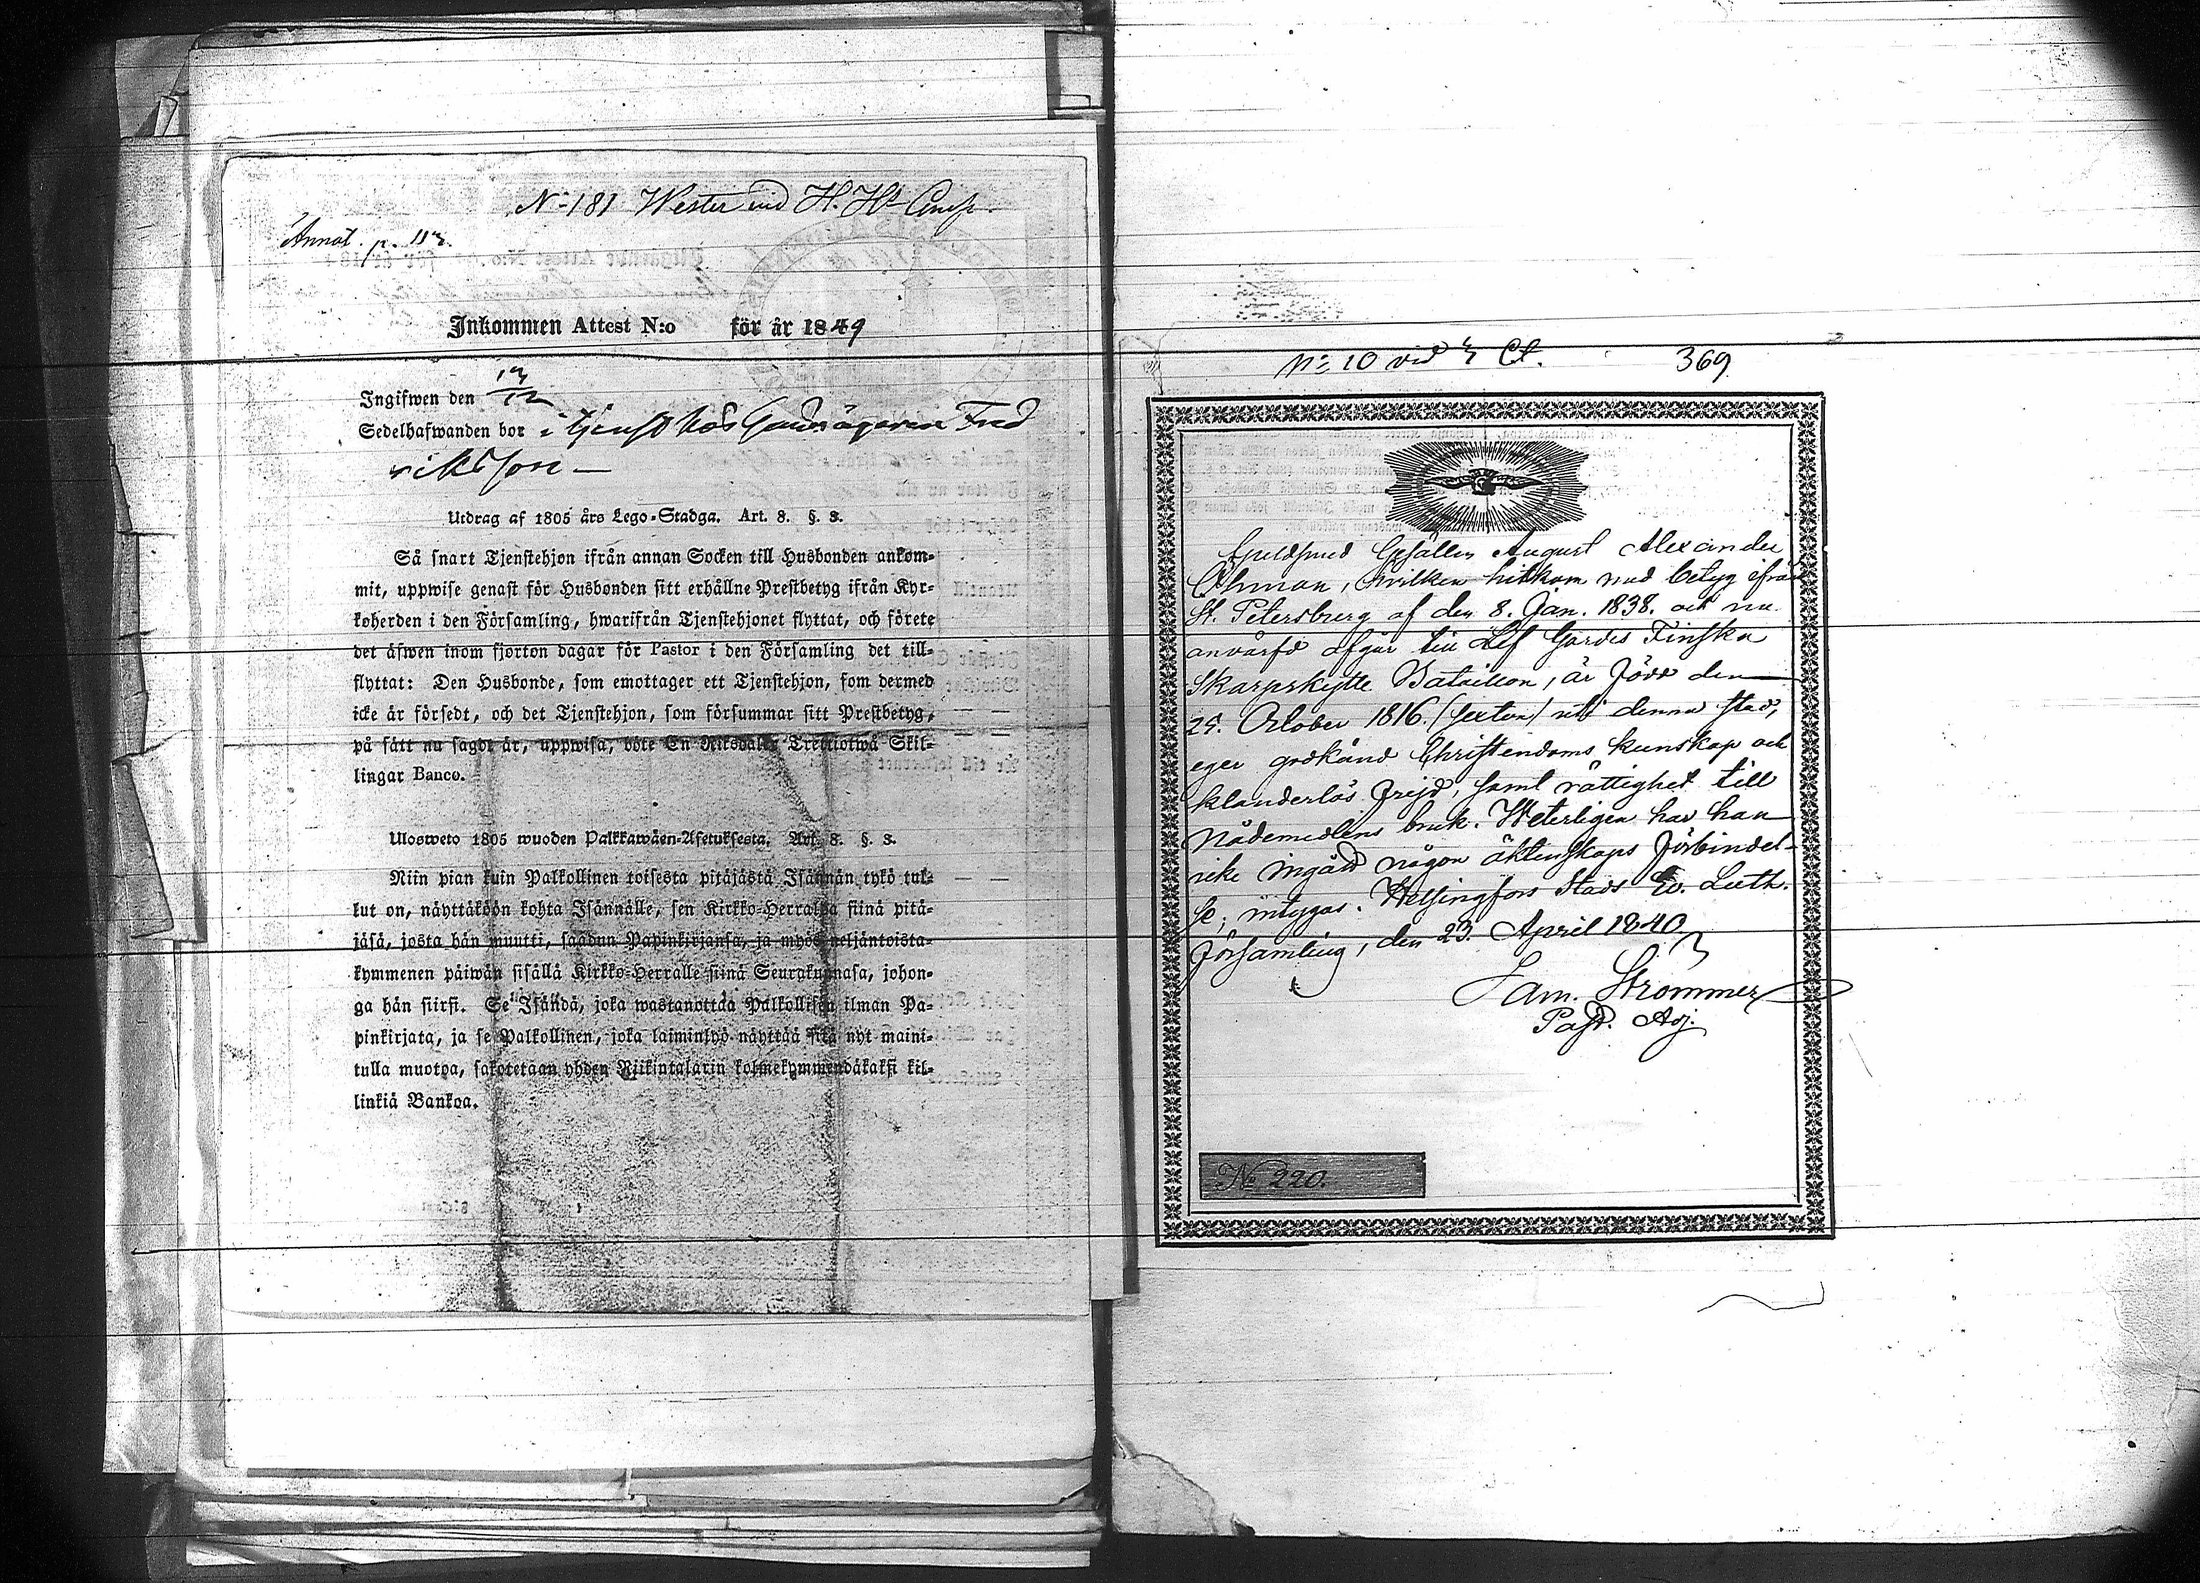 No 181 Wester vid H. Hs Comp.
Annot. p. 113.
Inkommen Attest N:o för år 1849
Ingifwen den 13/12
Sedelhafwanden bor i tjenst hos Gårdsägaren Fred
riksson —
Utdrag af 1805 års Lego-Stadga. Art. 8. §. 3.
Så snart Tjenstehjon ifrån annan Socken till Husbonden ankom-
mit, uppwise genast för Husbonden sitt erhållne Prestbetyg ifrån Kyr-
koherden i den Församling, hwarifrån Tjenstehjonet flyttat, och förete
det äfwen inom fjorton dagar för Pastor i den Församling det till-
flyttat: Den Husbonde, som emottager ett Tjenstehjon, som dermed
icke är försedt, och det Tjenstehjon, som försummar sitt Prestbetyg,
på sätt nu sagdt är, uppwisa, böte En Riksdaler Trettiotwå Skil-
lingar Banco.
Ulosweto 1805 wuoden Palkkawäen-Asetuksesta. Art. 8. §. 3.
Niin pian kuin Palkollinen toisesta pitäjästä Isännän tykö tul-
lut on, näyttäköön kohta Isännälle, sen Kirkko-Herralta siinä pitä-
jäsä, josta hän muutti, saadun Papinkirjansa, ja myös neljäntoista-
kymmenen päiwän sisällä Kirkko-Herralle siinä Seurakunnasa, johon-
ga hän siirsi. Se Isändä, joka wastanottaa Palkollisen ilman Pa-
pinkirjata, ja se Palkollinen, joka laiminlyö näyttää sitä nyt maini-
tulla muotoa, sakotetaan yhden Riikintalarin kolmekymmendäkaksi kil-
linkiä Bankoa.
No 10 vid 4 Ct. 369
Guldsmed Gesällen August Alexander
Öhman, hvilken hitkom med betyg ifrån
St. Petersburg af den 8. Jan. 1838. och nu
anvärfd afgår till Lif Gardes Finska
Skarpskytte Bataillon, är född den
25. October 1816. (sexton) uti denna stad,
eger godkänd Christendoms kunskap och
klanderlös frejd, samt rättighet till
Nådemedlens bruk. Weterligen har han
icke ingådt någon äktenskaps förbindel-
se; intygas. Helsingfors Stads Ev. Luth.
Församling, den 23. April 1840.
Sam. Strömmer
Past. Adj.
No 220.